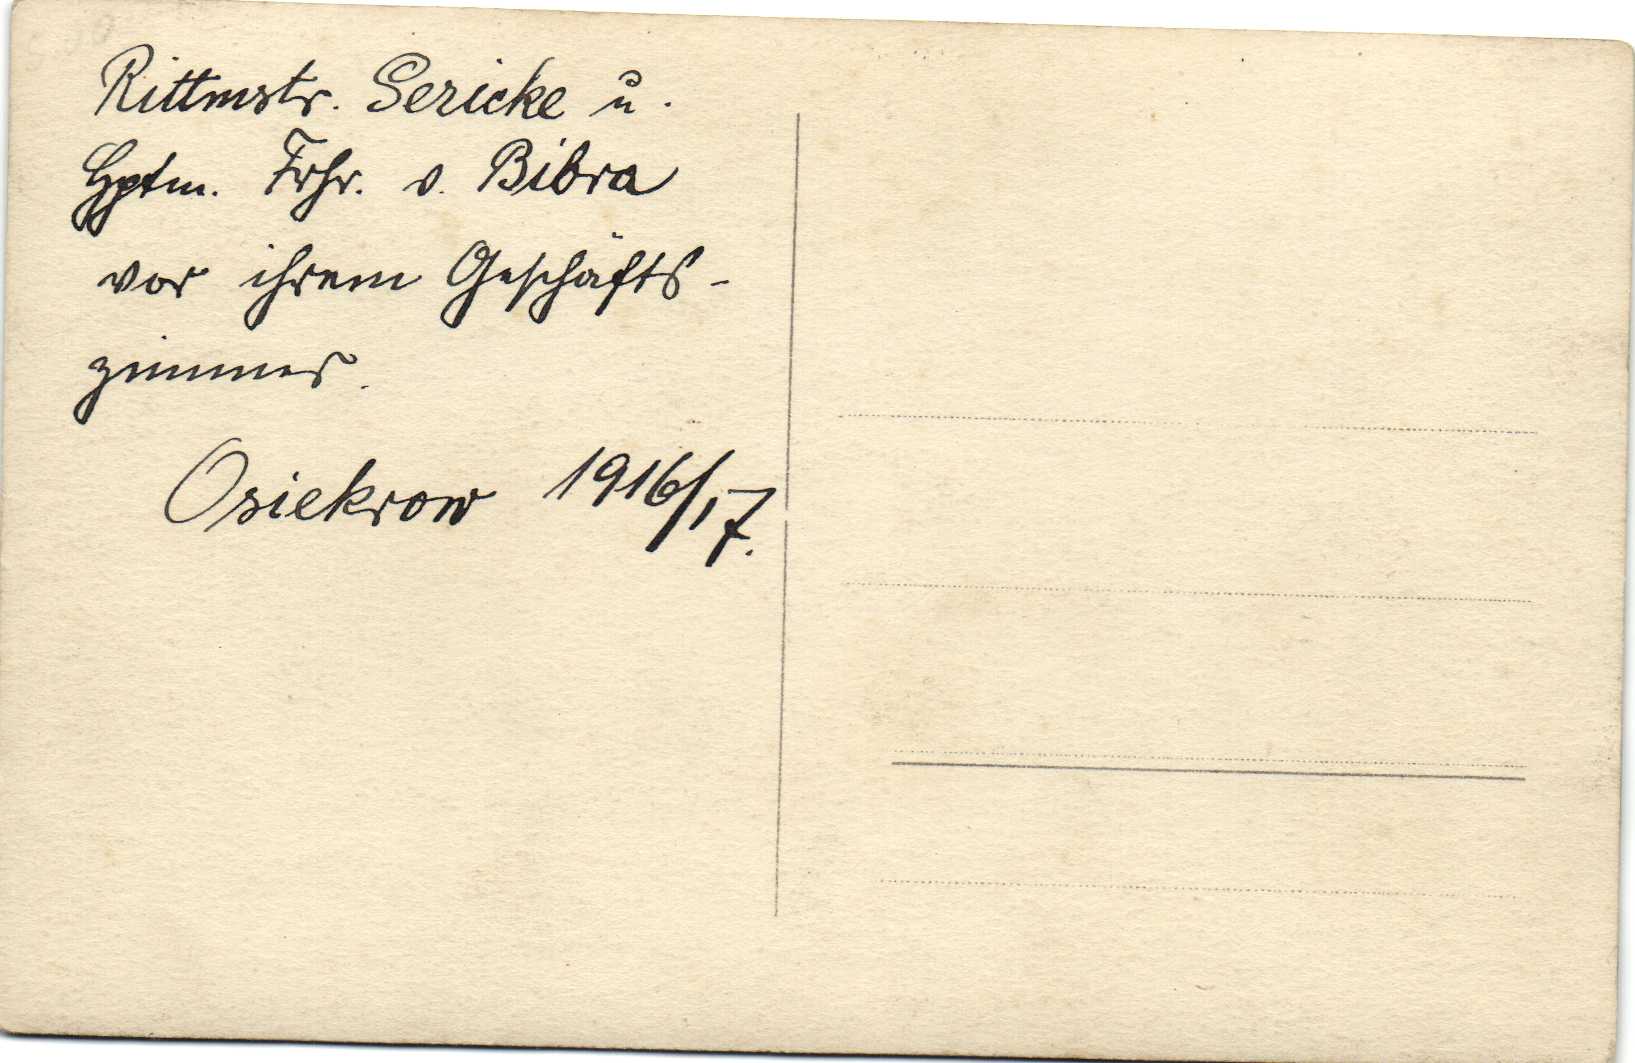 Rittmstr. Sericke u.
Hptm. Frhr. v. Bibra
vor ihrem Geschäfts-
zimmer.
Osiekrow 1916/17.